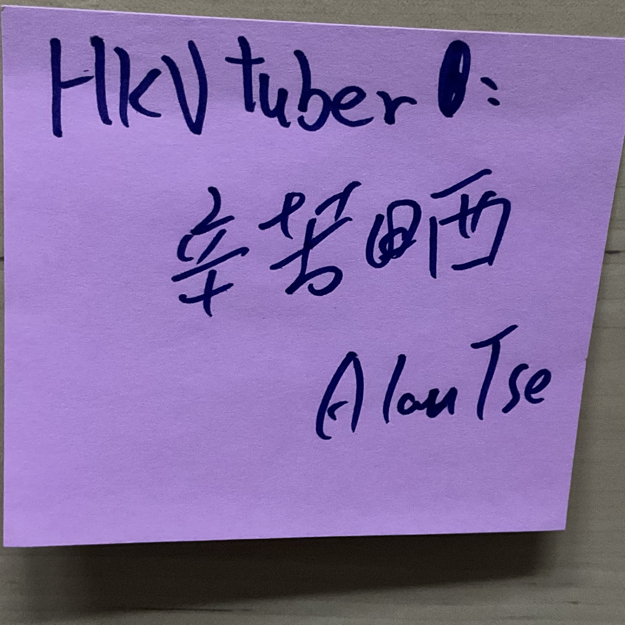 HKVtuber:
辛苦晒
Alan Tse